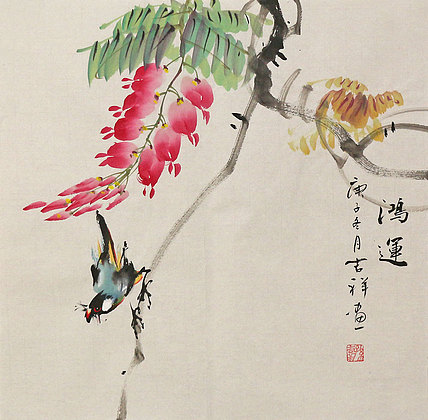 鴻運
庚子冬月吉祥畫